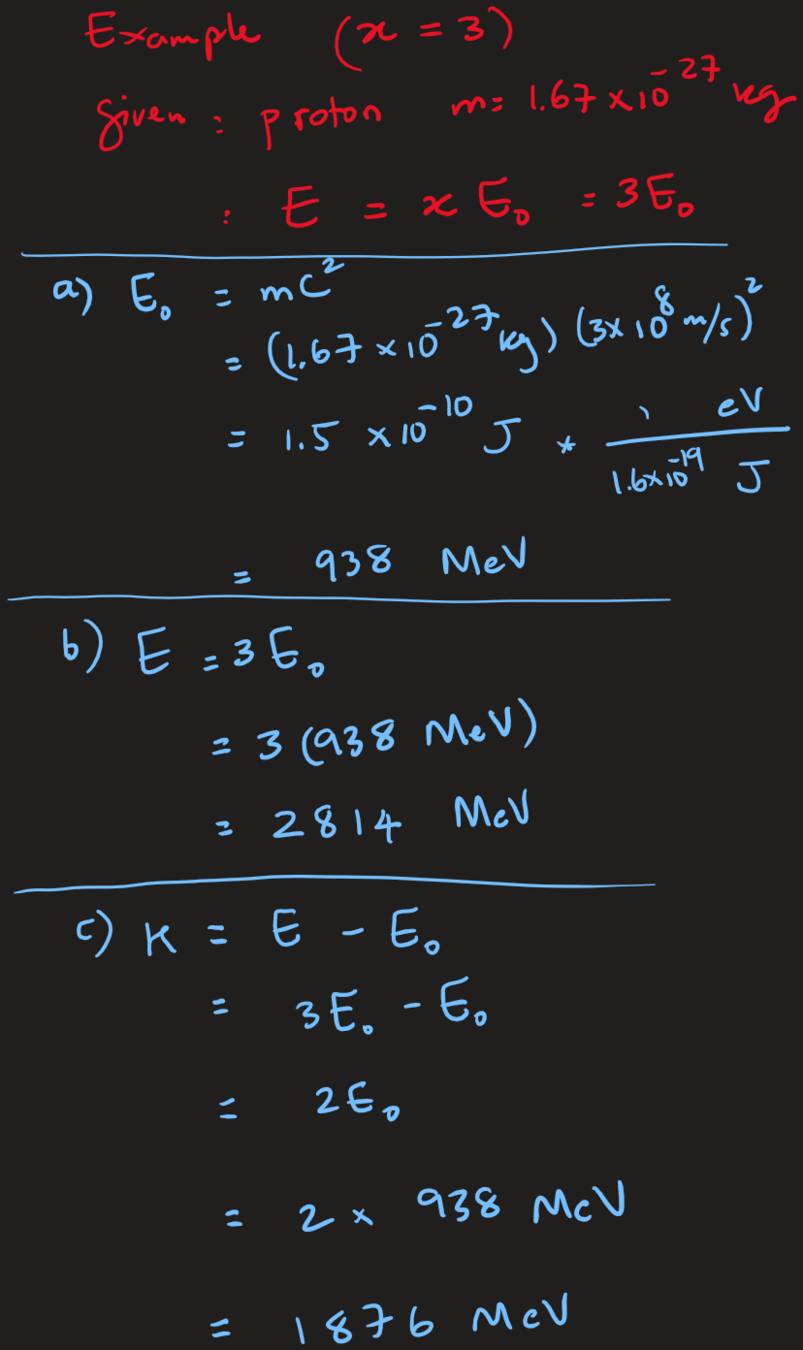 Example (x = 3)
Given : proton m = 1.67 × 10⁻²⁷ kg
: E = x E₀ = 3E₀
a) E₀ = mc²
= (1.67 × 10⁻²⁷ kg) (3 × 10⁸ m/s)²
= 1.5 × 10⁻¹⁰ J * 1 eV / 1.6×10⁻¹⁹ J
= 938 MeV
b) E = 3 E₀
= 3 (938 MeV)
= 2814 MeV
c) K = E - E₀
= 3E₀ - E₀
= 2E₀
= 2 × 938 MeV
= 1876 MeV